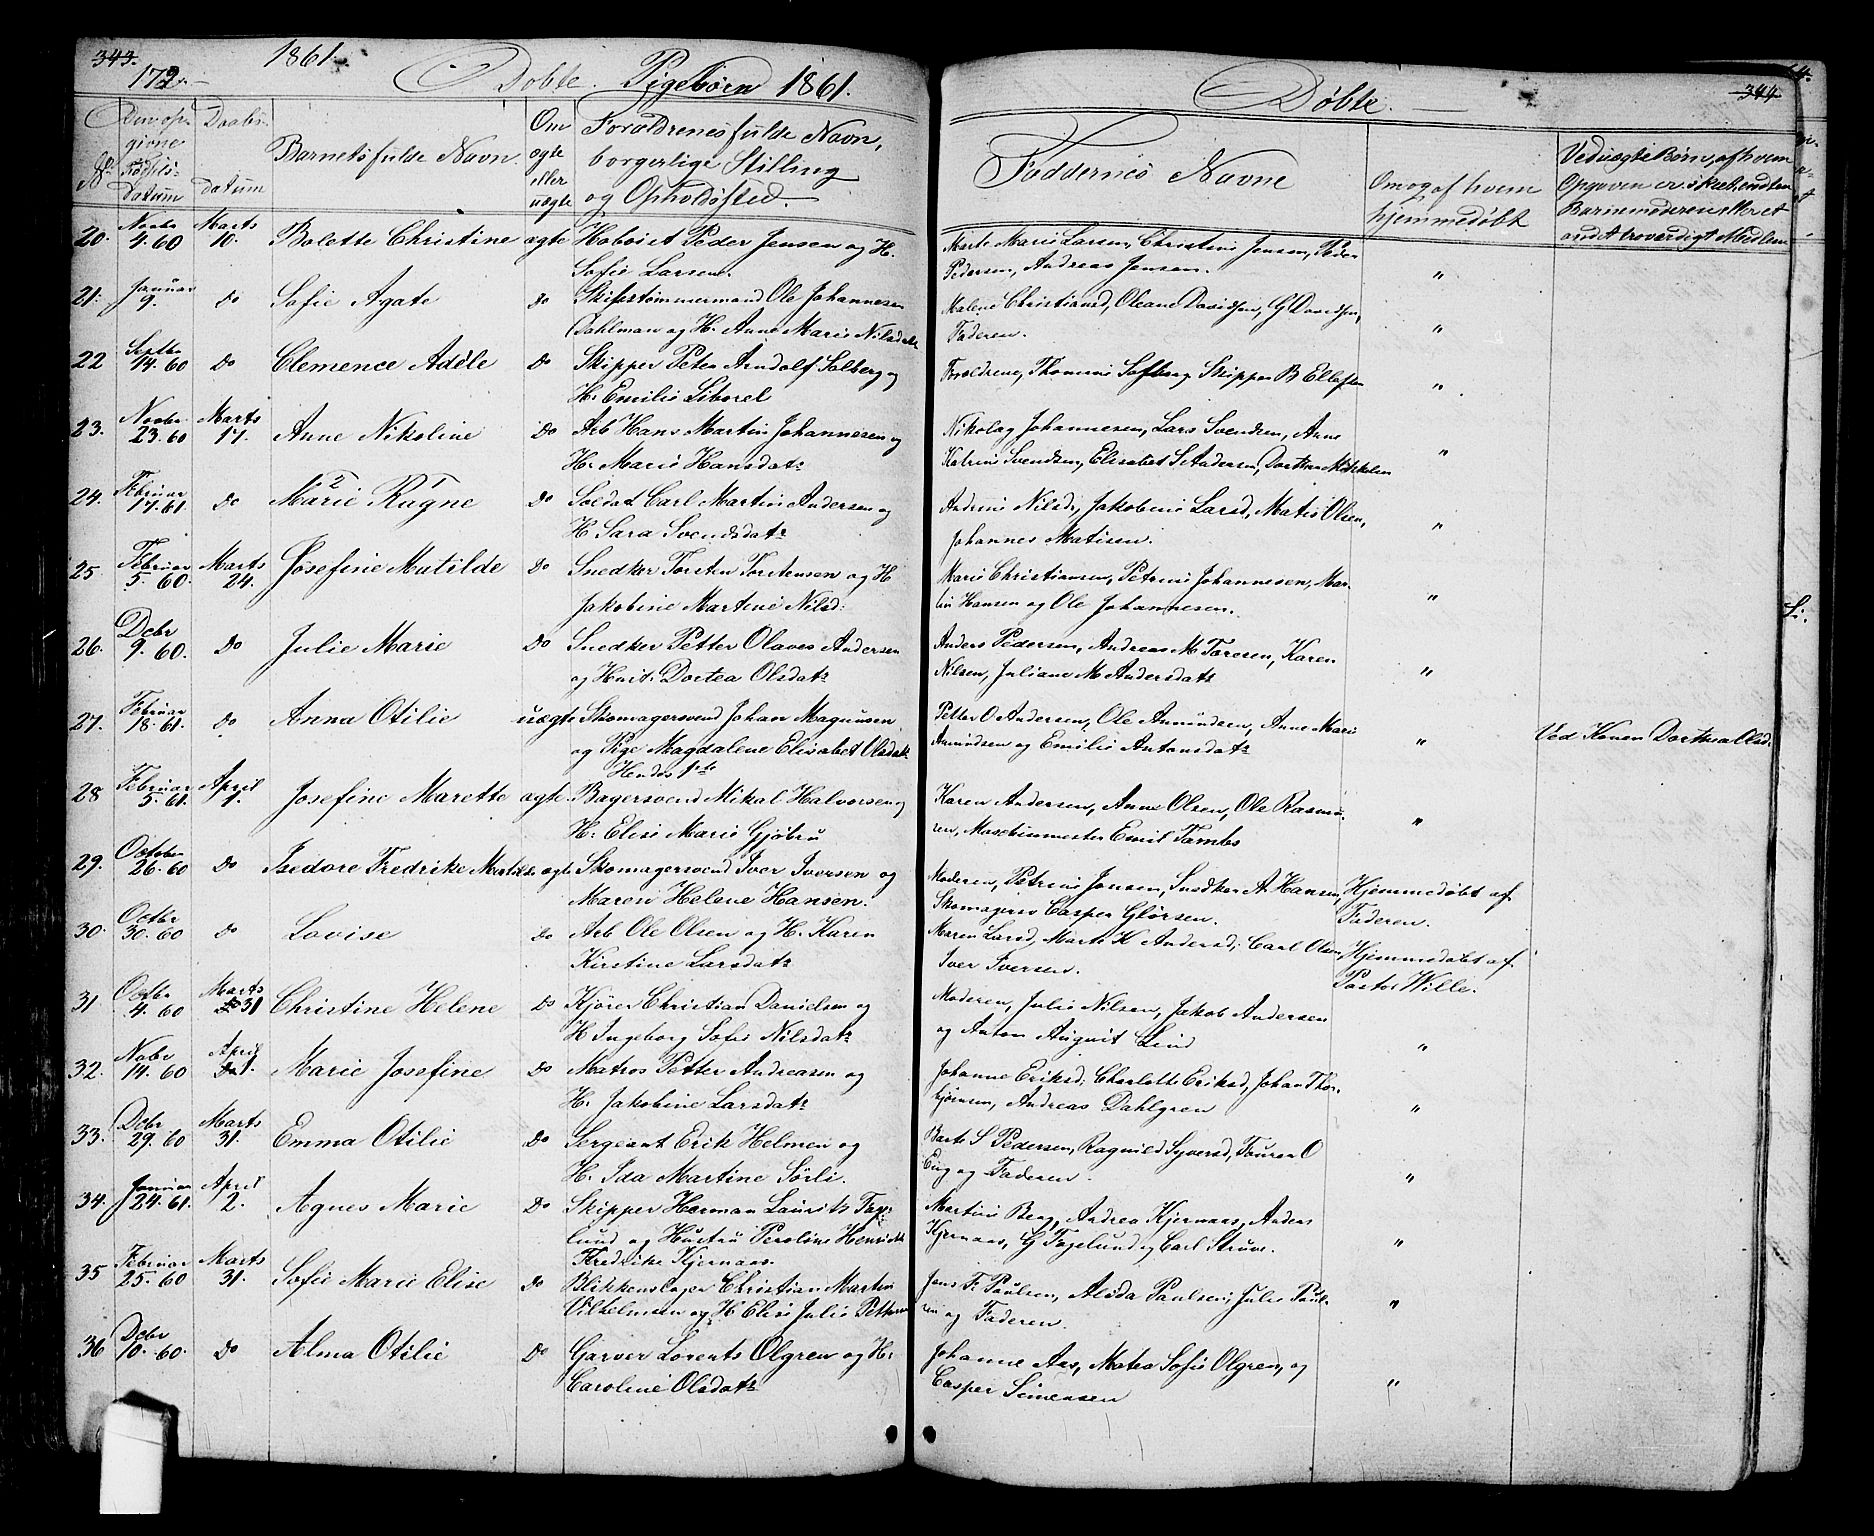 343.
172.
1861.
Døbte Pigebørn 1861.
No
Den opgivne Fødselsdatum
Daabsdatum
Barnets fulde Navn.
Om ægte eller uægte
Forældrenes fulde Navn, borgerlige Stilling og Opholdssted.
20. Novbr 4. 60 Marts 10. Bolette Christine ægte Hoboist Peder Jensen og H.
Sofie Larsen.
21. Januar 9. Do Sofie Agate Do Skibstømmermand Ole Johannesen
Dahlman og H. Anne Marie Nilsdatr
22 Septbr 14. 60 Do Clemence Adéle Do Skipper Peter Arndolf Solberg og
H. Emilie Liborel
23. Novbr 23. 60 Marts 17. Anne Nikoline Do Arb Hans Martin Johannesen og
H. Marie Hansdatr
24. Februar 17. 61. Do Marie Ragne Do Soldat Carl Martin Andersen og
H. Sara Svendsdatr
25. Februar 5. 60. Marts 24. Josefine Matilde Do Snedker Torsten Torstensen og H
Jakobine Martine Nilsd:
26. Dcbr 9. 60. Do Julie Marie Do Snedker Petter Olaves Andersen
og Hust. Dortea Olsdatr
27. Februar 18. 61. Do Anna Otilie uægte Skomagersvend Johan Magnusen
og Pige Magdalene Elisabet Olsdatr
Hendes 1ste
28 Februar 5. 61. April 1. Josefine Marette ægte Bagersvend Mikal Halvorsen og
H. Elise Marie Gjøbru
29. October 26. 60 Do Isedore Fredrike Matilde ægte Skomagersvend Iver Iversen og
Maren Helene Hansen.
30. Octbr 30. 60 Do Lovise Do Arb Ole Olsen og H. Karen
Kirstine Larsdatr
31 Octbr 4. 60 Marts 31 Christine Helene Do Kjører Christian Danielsen og
H Ingeborg Sofie Nilsdatr
32. Novbr 14. 60 April 1. Marie Josefine Do Matros Petter Andreasen og
H. Jakobine Larsdatr
33. Dcbr 29. 60 Marts 31. Emma Otilie Do Sergeant Erik Helmen og
H. Ida Martine Sørli.
34. Januar 24. 61. April 2. Agnes Marie Do Skipper Herman Laurits Fagerlund og Hustru Peroline Henriette
Fredrike Kjernaas.
35 Februar 25. 60 Marts 31. Sofie Marie Elise Do Blikkenslager Christian Martin
Vilhelmsen og H. Elise Julie Pettersen
36 Dcbr 10. 60. Do Alma Otilie Do Garver Lorents Olgren og H.
Caroline Olsdatr
344
Døbte.
Faddernes Navne
Om og af hvem hjemmedøbt
Ved uægte Børn, af hvem Opgaven er skeet, endten Barnemoderen eller et andet troværdigt Medlem
Marte Marie Larsen, Christine Jensen, Peder
Pedersen, Andreas Jensen. "
Malene Christiansd, Oleane Davidsen, G Davidsen,
Faderen. "
Forældrene, Thomine Solberg Skipper B Ellefsen "
Nikolay Johannesen, Lars Svendsen, Anne
Katrine Svendsen, Elisabet S Andersen, Dorthea Mikkelsen "
Andrine Nilsd, Jakobine Larsd, Matis Olsen,
Johannes Matisen. "
Marie Christiansen, Petrine Johannesen, Martin Hansen og Ole Johannesen. "
Anders Pedersen, Andreas M Toresen, Karen
Nilsen, Juliane M Andersdatr "
Petter O Andersen, Ole Amundsen, Anne Marie
Amundsen og Emilie Antonsdatr " Ved Konen Dorthea Olsd.
Karen Andersen, Anne Olsen, Ole Rasmusen, Maschinmester Emil Tambs "
Moderen, Petrine Jensen, Snedker A. Hansen,
Skomagersv Casper Glørsen. Hjemmedøbt af Faderen.
Maren Larsd, Marte K Andersd, Carl Olsen,
Iver Iversen. Hjemmedøbt af Pastor Wille.
Moderen, Julie Nilsen, Jakob Andersen
og Anton August Lind "
Johanne Eriksd, Charlotte Eriksd, Johan Thorbjørnsen, Andreas Dahlgren "
Barte S Pedersen, Ragnild Syversd, Fouren O
Eng og Faderen. "
Martine Berg, Andrea Kjernaas, Anders
Kjernaas, G Fagelund og Carl Struve. "
Jens F. Paulsen, Alida Paulsen, Julie Paulsen og Faderen. "
Johanne Aas, Matea Sofie Olgren, og
Casper Simensen "